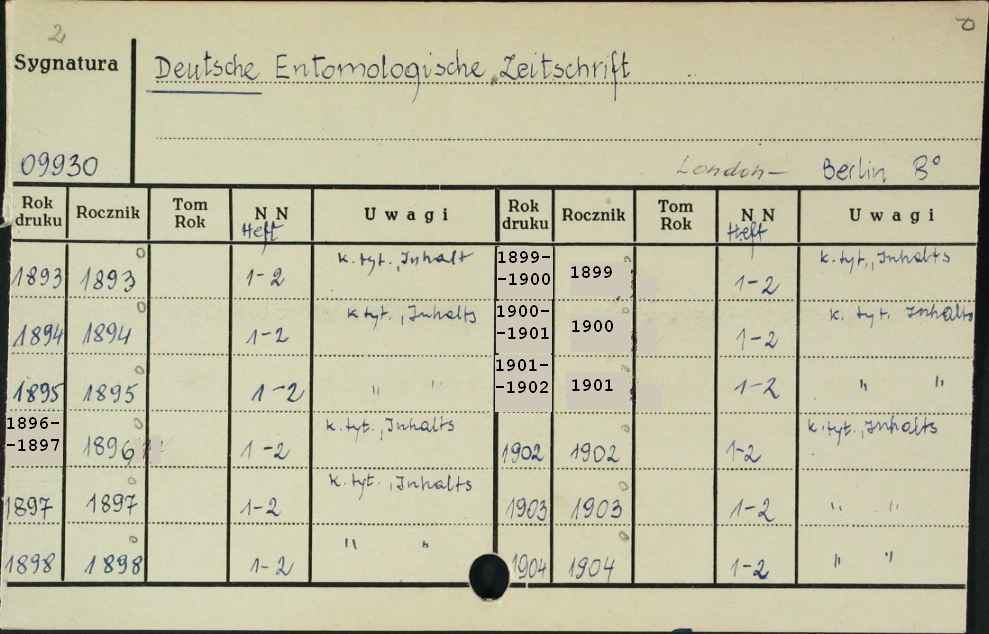 2
Sygnatura
Deutsche Entomologische Zeitschrift
09930
London — Berlin 8°
Rok druku Rocznik Tom Rok N N Heft Uwagi Rok druku Rocznik Tom Rok N N Heft Uwagi
1893 1893 1-2 k. tyt., Inhalt 1899--1900 1899 1-2 k. tyt., Inhalts
1894 1894 1-2 k tyt., Inhalts 1900--1901 1900 1-2 k. tyt. Inhalts
1895 1895 1-2 " " 1901--1902 1901 1-2 " "
1896--1897 1896 1-2 k. tyt., Inhalts 1902 1902 1-2 k. tyt., Inhalts
1897 1897 1-2 k. tyt., Inhalts 1903 1903 1-2 " "
1898 1898 1-2 " " 1904 1904 1-2 " "